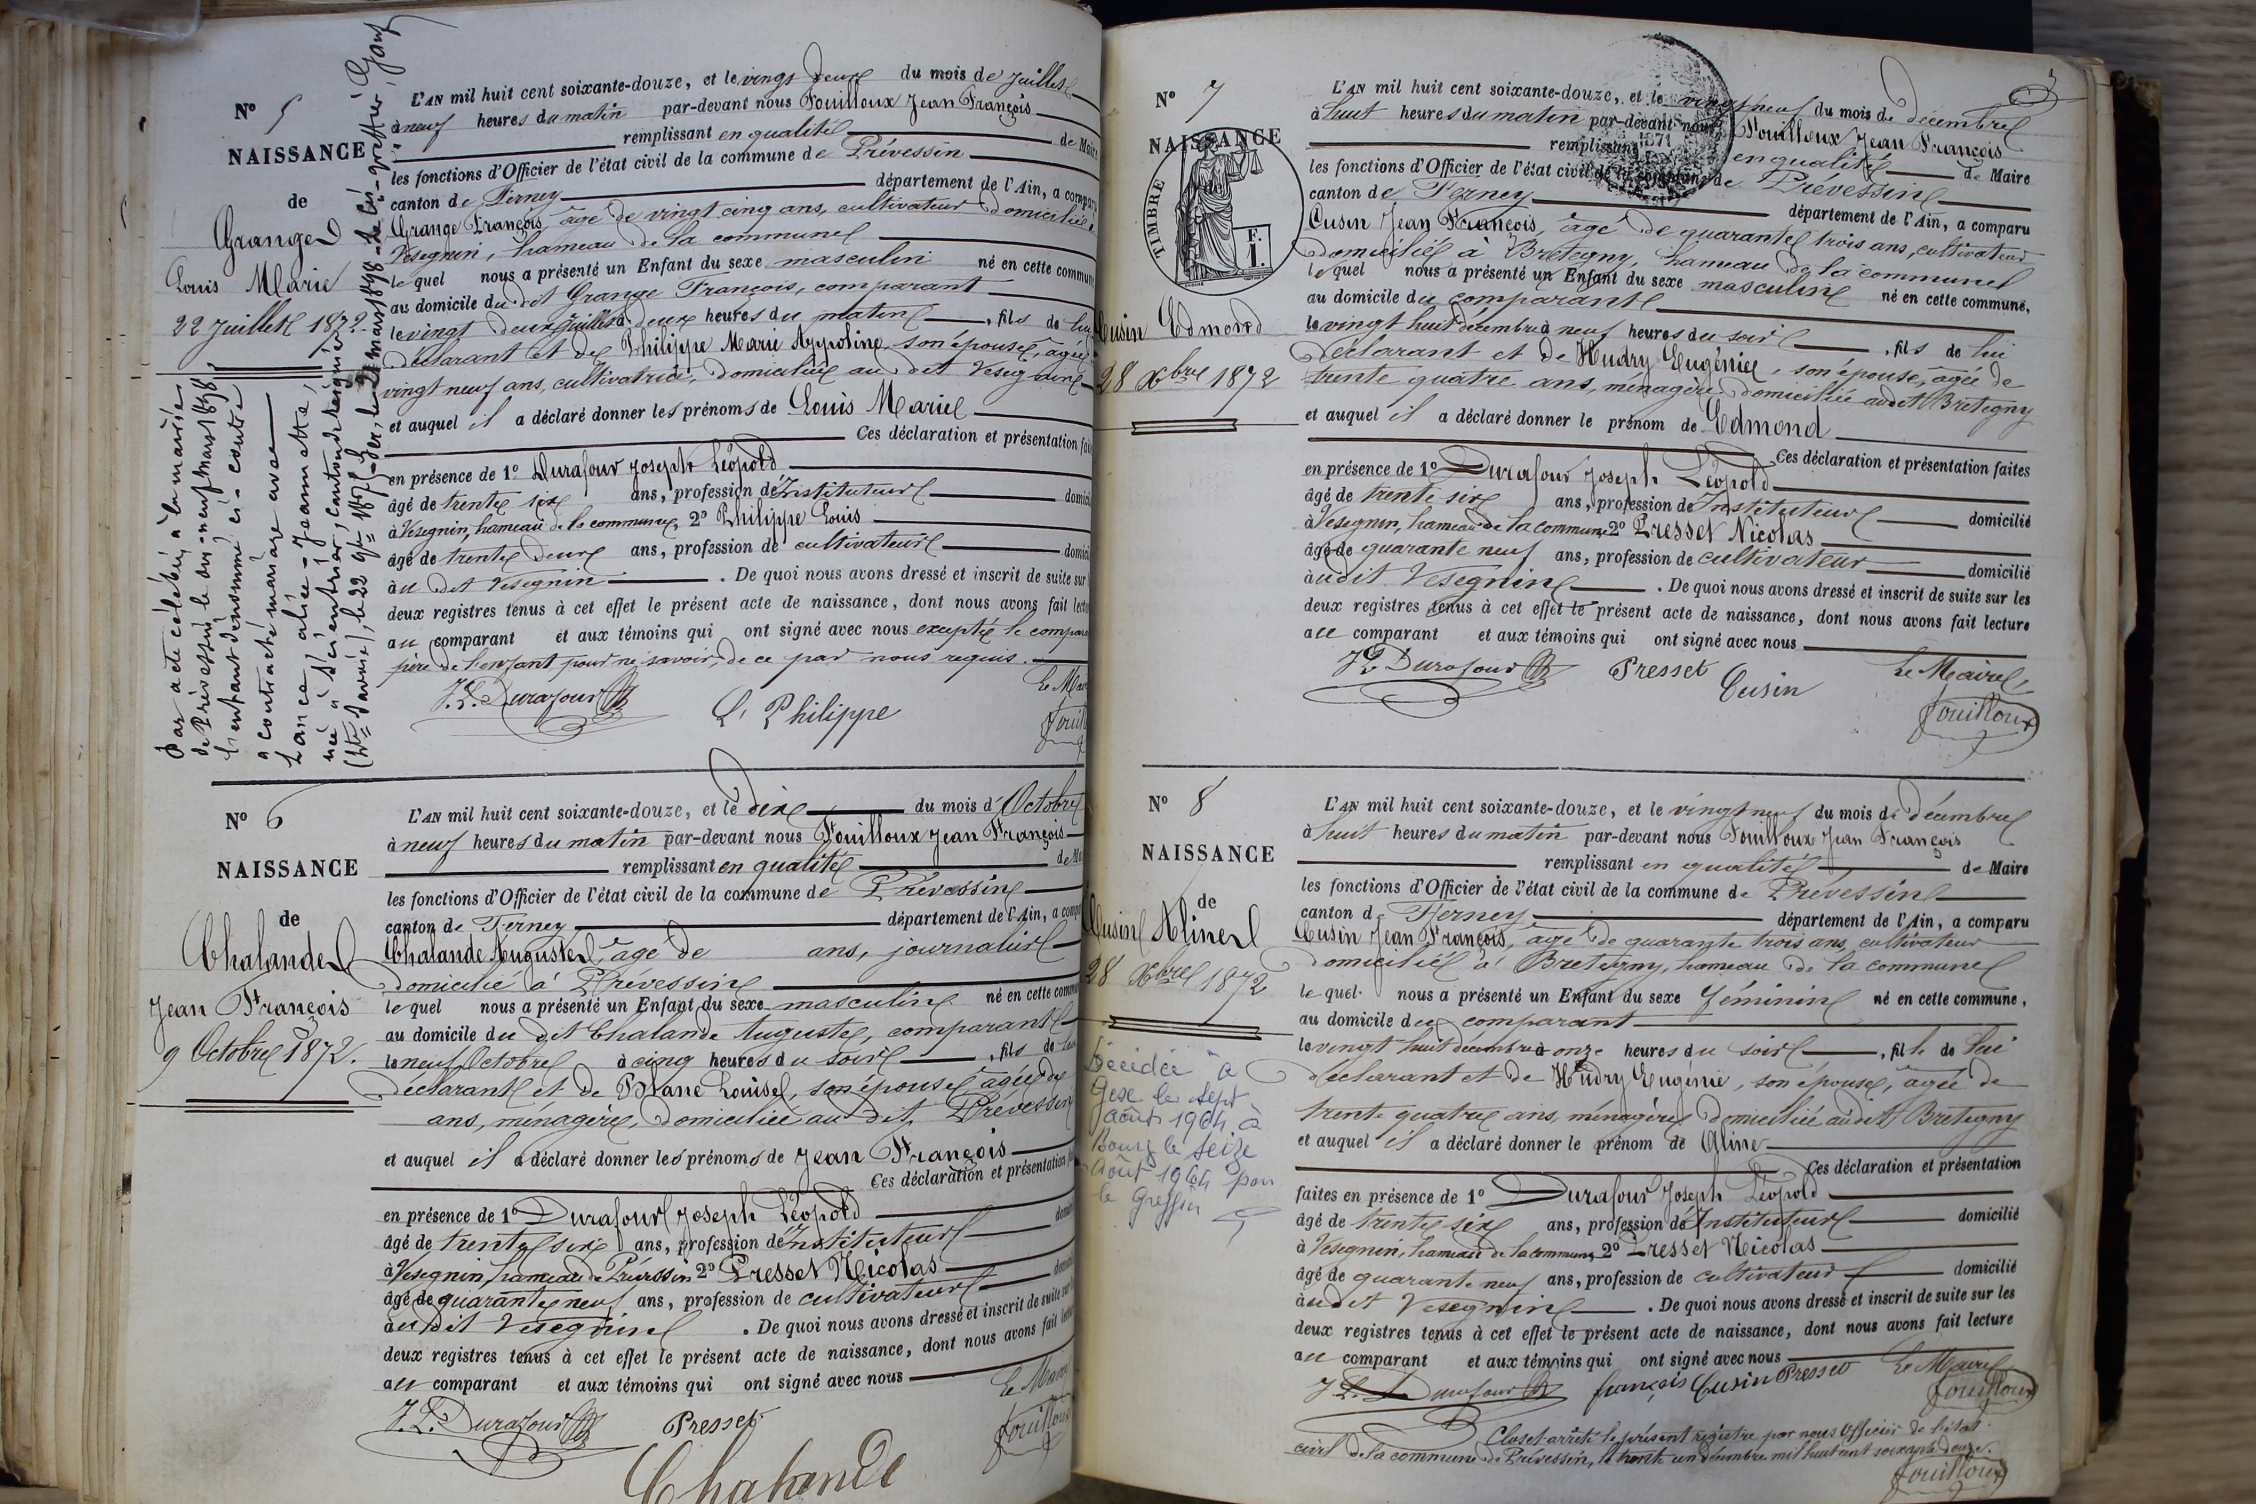 N° 5
NAISSANCE
de
Grange
Louis Marie
22 Juillet 1872.
Par acte célébré, à la mairie
de Prévessin le dix-neuf mars 1898,
l'enfant dénommé ci-contre
a contracté mariage avec
Lance, alice-Jeannette,
née à
(Hte Savoie), le 22 9bre 1875.
L'AN mil huit cent soixante-douze, et le vingt deux du mois de Juillet
à neuf heures du matin par-devant nous Fouilloux Jean François
remplissant en qualité de Maire
les fonctions d'Officier de l'état civil de la commune de Prévessin
canton de Ferney département de l'Ain, a comparu
Grange François, âgé de vingt cinq ans, cultivateur domicilié à
Vesegnin, hameau de la commune
lequel nous a présenté un Enfant du sexe masculin né en cette commune
au domicile du dit Grange François, comparant
le vingt deux Juillet à deux heures du matin, fils de lui
déclarant et de Philippe Marie Appoline son épouse, âgée
vingt neuf ans, cultivatrice, domiciliée au dit Vesegnin
et auquel il a déclaré donner les prénoms de Louis Marie
Ces déclaration et présentation fai
en présence de 1° Durafour Joseph Léopold
âgé de trente six ans, profession d'Instituteur domici
à Vesegnin, hameau de la commune, 2° Philippe Louis
âgé de trente deux ans, profession de cultivateur domici
au dit Vesegnin. De quoi nous avons dressé et inscrit de suite sur
deux registres tenus à cet effet le présent acte de naissance, dont nous avons fait lectu
au comparant et aux témoins qui ont signé avec nous excepté le compara
père de l'enfant pour ne savoir, de ce par nous requis.
J. L. Durafour L. Philippe Le Mai
Fouill
N° 6
NAISSANCE
de
Chalande
Jean François
9 Octobre 1872.
L'AN mil huit cent soixante-douze, et le dix du mois d'Octobre
à neuf heures du matin par-devant nous Fouilloux Jean François
remplissant en qualité de Ma
les fonctions d'Officier de l'état civil de la commune de Prévessin
canton de Ferney département de l'Ain, a comp
Chalande Auguste, âgé de ans, journalier
domicilié à Prévessin
lequel nous a présenté un Enfant du sexe masculin né en cette commu
au domicile du dit Chalande Auguste, comparant
le neuf Octobre à cinq heures du soir, fils de lui
déclarant et de Blanc Louise, son épouse âgée de
ans, ménagère, domiciliée au dit Prévessin
et auquel il a déclaré donner les prénoms de Jean François
Ces déclaration et présentation
en présence de 1° Durafour Joseph Léopold
âgé de trente six ans, profession d'Instituteur
à Vesegnin, hameau de Prévessin 2° Presset Nicolas
âgé de quarante neuf ans, profession de cultivateur
au dit Vesegnin. De quoi nous avons dressé et inscrit de suite sur
deux registres tenus à cet effet le présent acte de naissance, dont nous avons fait lectu
au comparant et aux témoins qui ont signé avec nous
J. L. Durafour Presset Le Maire
Chalande Fouilloux
3
N° 7
NAISSANCE
TIMBRE
F.
1.
Cusin Edmond
28 Xbre 1872
1871
L'AN mil huit cent soixante-douze, et le vingt neuf du mois de décembre
à huit heures du matin par-devant nous Fouilloux Jean François
remplissant en qualité de Maire
les fonctions d'Officier de l'état civil de la commune de Prévessin
canton de Ferney département de l'Ain, a comparu
Cusin Jean François, âgé de quarante trois ans, cultivateur
domicilié à Bretegny, hameau de la commune
lequel nous a présenté un Enfant du sexe masculin né en cette commune,
au domicile du comparant
le vingt huit décembre à neuf heures du soir, fils de lui
déclarant et de Hudry Eugénie, son épouse, âgée de
trente quatre ans, ménagère domiciliée audit Bretegny
et auquel il a déclaré donner le prénom de Edmond
Ces déclaration et présentation faites
en présence de 1° Durafour Joseph Léopold
âgé de trente six ans, profession d'Instituteur domicilié
à Vesegnin, hameau de la commune 2° Presset Nicolas
âgé de quarante neuf ans, profession de cultivateur domicilié
audit Vesegnin. De quoi nous avons dressé et inscrit de suite sur les
deux registres tenus à cet effet le présent acte de naissance, dont nous avons fait lecture
au comparant et aux témoins qui ont signé avec nous
J L Durafour Presset Cusin Le Maire,
Fouilloux
N° 8
NAISSANCE
de
Cusin Aline
28 Xbre 1872
Décédée à
Gex le sept
août 1964 à
Bourg le seize
Août 1964 pour
le Greffier
L'AN mil huit cent soixante-douze, et le vingt neuf du mois de décembre
à huit heures du matin par-devant nous Fouilloux Jean François
remplissant en qualité de Maire
les fonctions d'Officier de l'état civil de la commune de Prévessin
canton de Ferney département de l'Ain, a comparu
Cusin Jean François, âgé de quarante trois ans, cultivateur
domicilié à Bretegny, hameau de la commune
lequel nous a présenté un Enfant du sexe féminin né en cette commune,
au domicile du comparant
le vingt huit décembre à onze heures du soir, fille de lui
déclarant et de Hudry Eugénie, son épouse, âgée de
trente quatre ans, ménagère domiciliée audit Bretegny
et auquel il a déclaré donner le prénom de Aline
Ces déclaration et présentation
faites en présence de 1° Durafour Joseph Léopold
âgé de trente six ans, profession d'Instituteur domicilié
à Vesegnin, hameau de la commune 2° Presset Nicolas
âgé de quarante neuf ans, profession de cultivateur domicilié
audit Vesegnin. De quoi nous avons dressé et inscrit de suite sur les
deux registres tenus à cet effet le présent acte de naissance, dont nous avons fait lecture
au comparant et aux témoins qui ont signé avec nous
J. L. Durafour françois Cusin Presset Le Maire
Fouilloux
Clos et arrêté le présent registre par nous Officier de l'état
civil de la commune de Prévessin, le trente un décembre mil huit cent soixante douze.
Fouilloux